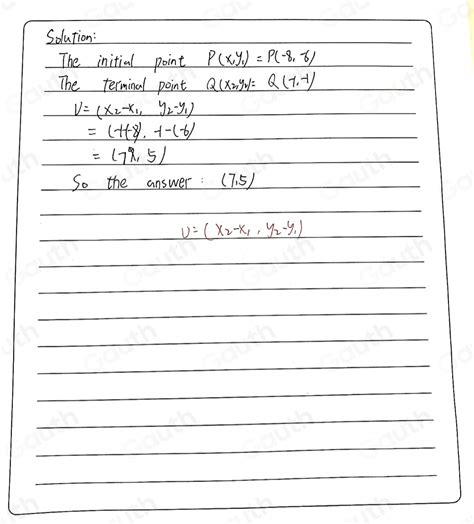 Solution:
The initial point P(x,y₁) = P(-8,-6)
The terminal point Q(x₂,y₂)= Q(-1,-1)
V=(x₂-x₁, y₂-y₁)
= (-1-(-8), -1-(-6)
= (7, 5)
So the answer: (7,5)
V=(x₂-x₁, y₂-y₁)
Gauth